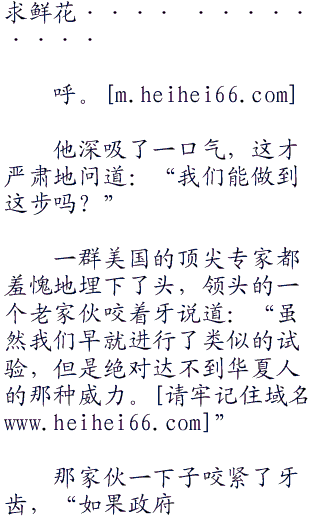 求鲜花·········
····
呼。[m.heihei66.com]
他深吸了一口气，这才
严肃地问道：“我们能做到
这步吗？”
一群美国的顶尖专家都
羞愧地埋下了头，领头的一
个老家伙咬着牙说道：“虽
然我们早就进行了类似的试
验，但是绝对达不到华夏人
的那种威力。[请牢记住域名
www.heihei66.com]”
那家伙一下子咬紧了牙
齿，“如果政府